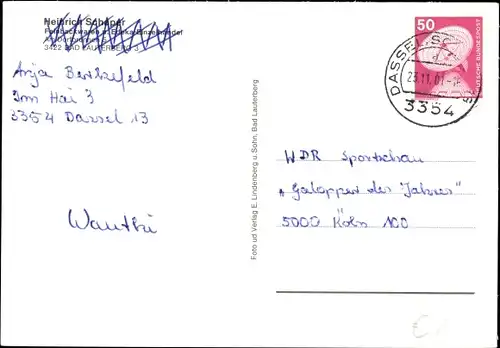 Heinrich Schaper
3422 BAD LAUTERBERG 3
Anja Berkefeld
Im Hai 3
3354 Dassel 13
Wauthi
Foto ud Verlag E. Lindenberg u. Sohn, Bad Lauterberg
50
DEUTSCHE BUNDESPOST
DASSEL
23.11.
3354
WDR Sportschau
"Galopper des Jahres"
5000 Köln 100